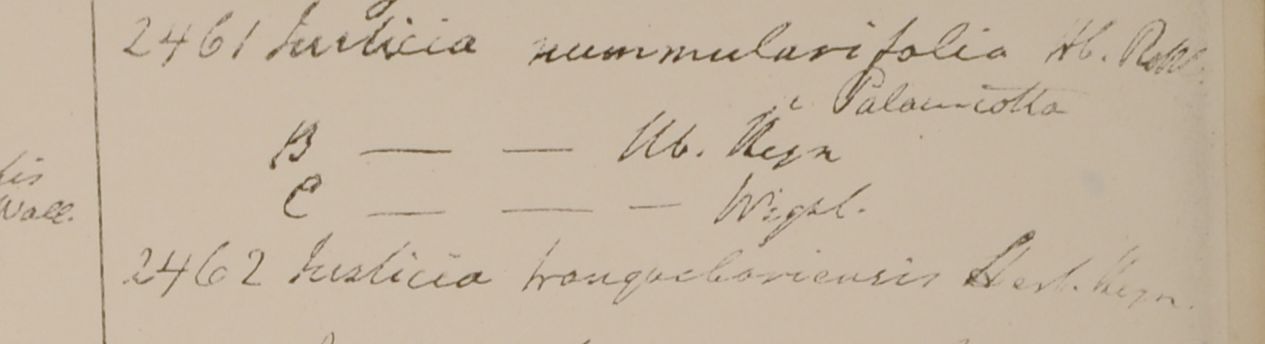 2461 Justicia nummularifolia Hb. Rottl.
e Palamcotta
B — — Hb. Heyn
C — — — Wight.
2462 Justicia tranquebariensis Herb. Heyn.
lis
Wall.